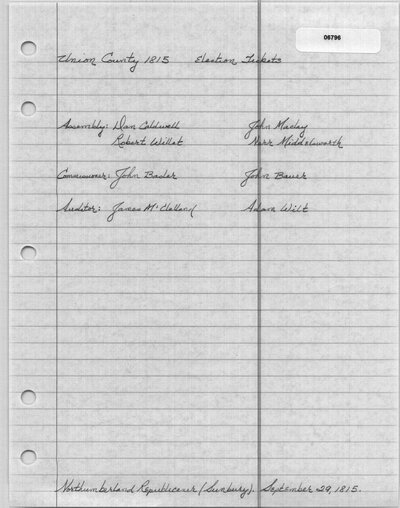 06796
Union County 1815 Election Tickets
Assembly: Dan Caldwell John Maclay
Robert Willet Ner Middleswarth
Commissioner: John Bader John Bauer
Auditor: James McClelland Adam Wilt
Northumberland Republicaner (Sunbury). September 29, 1815.